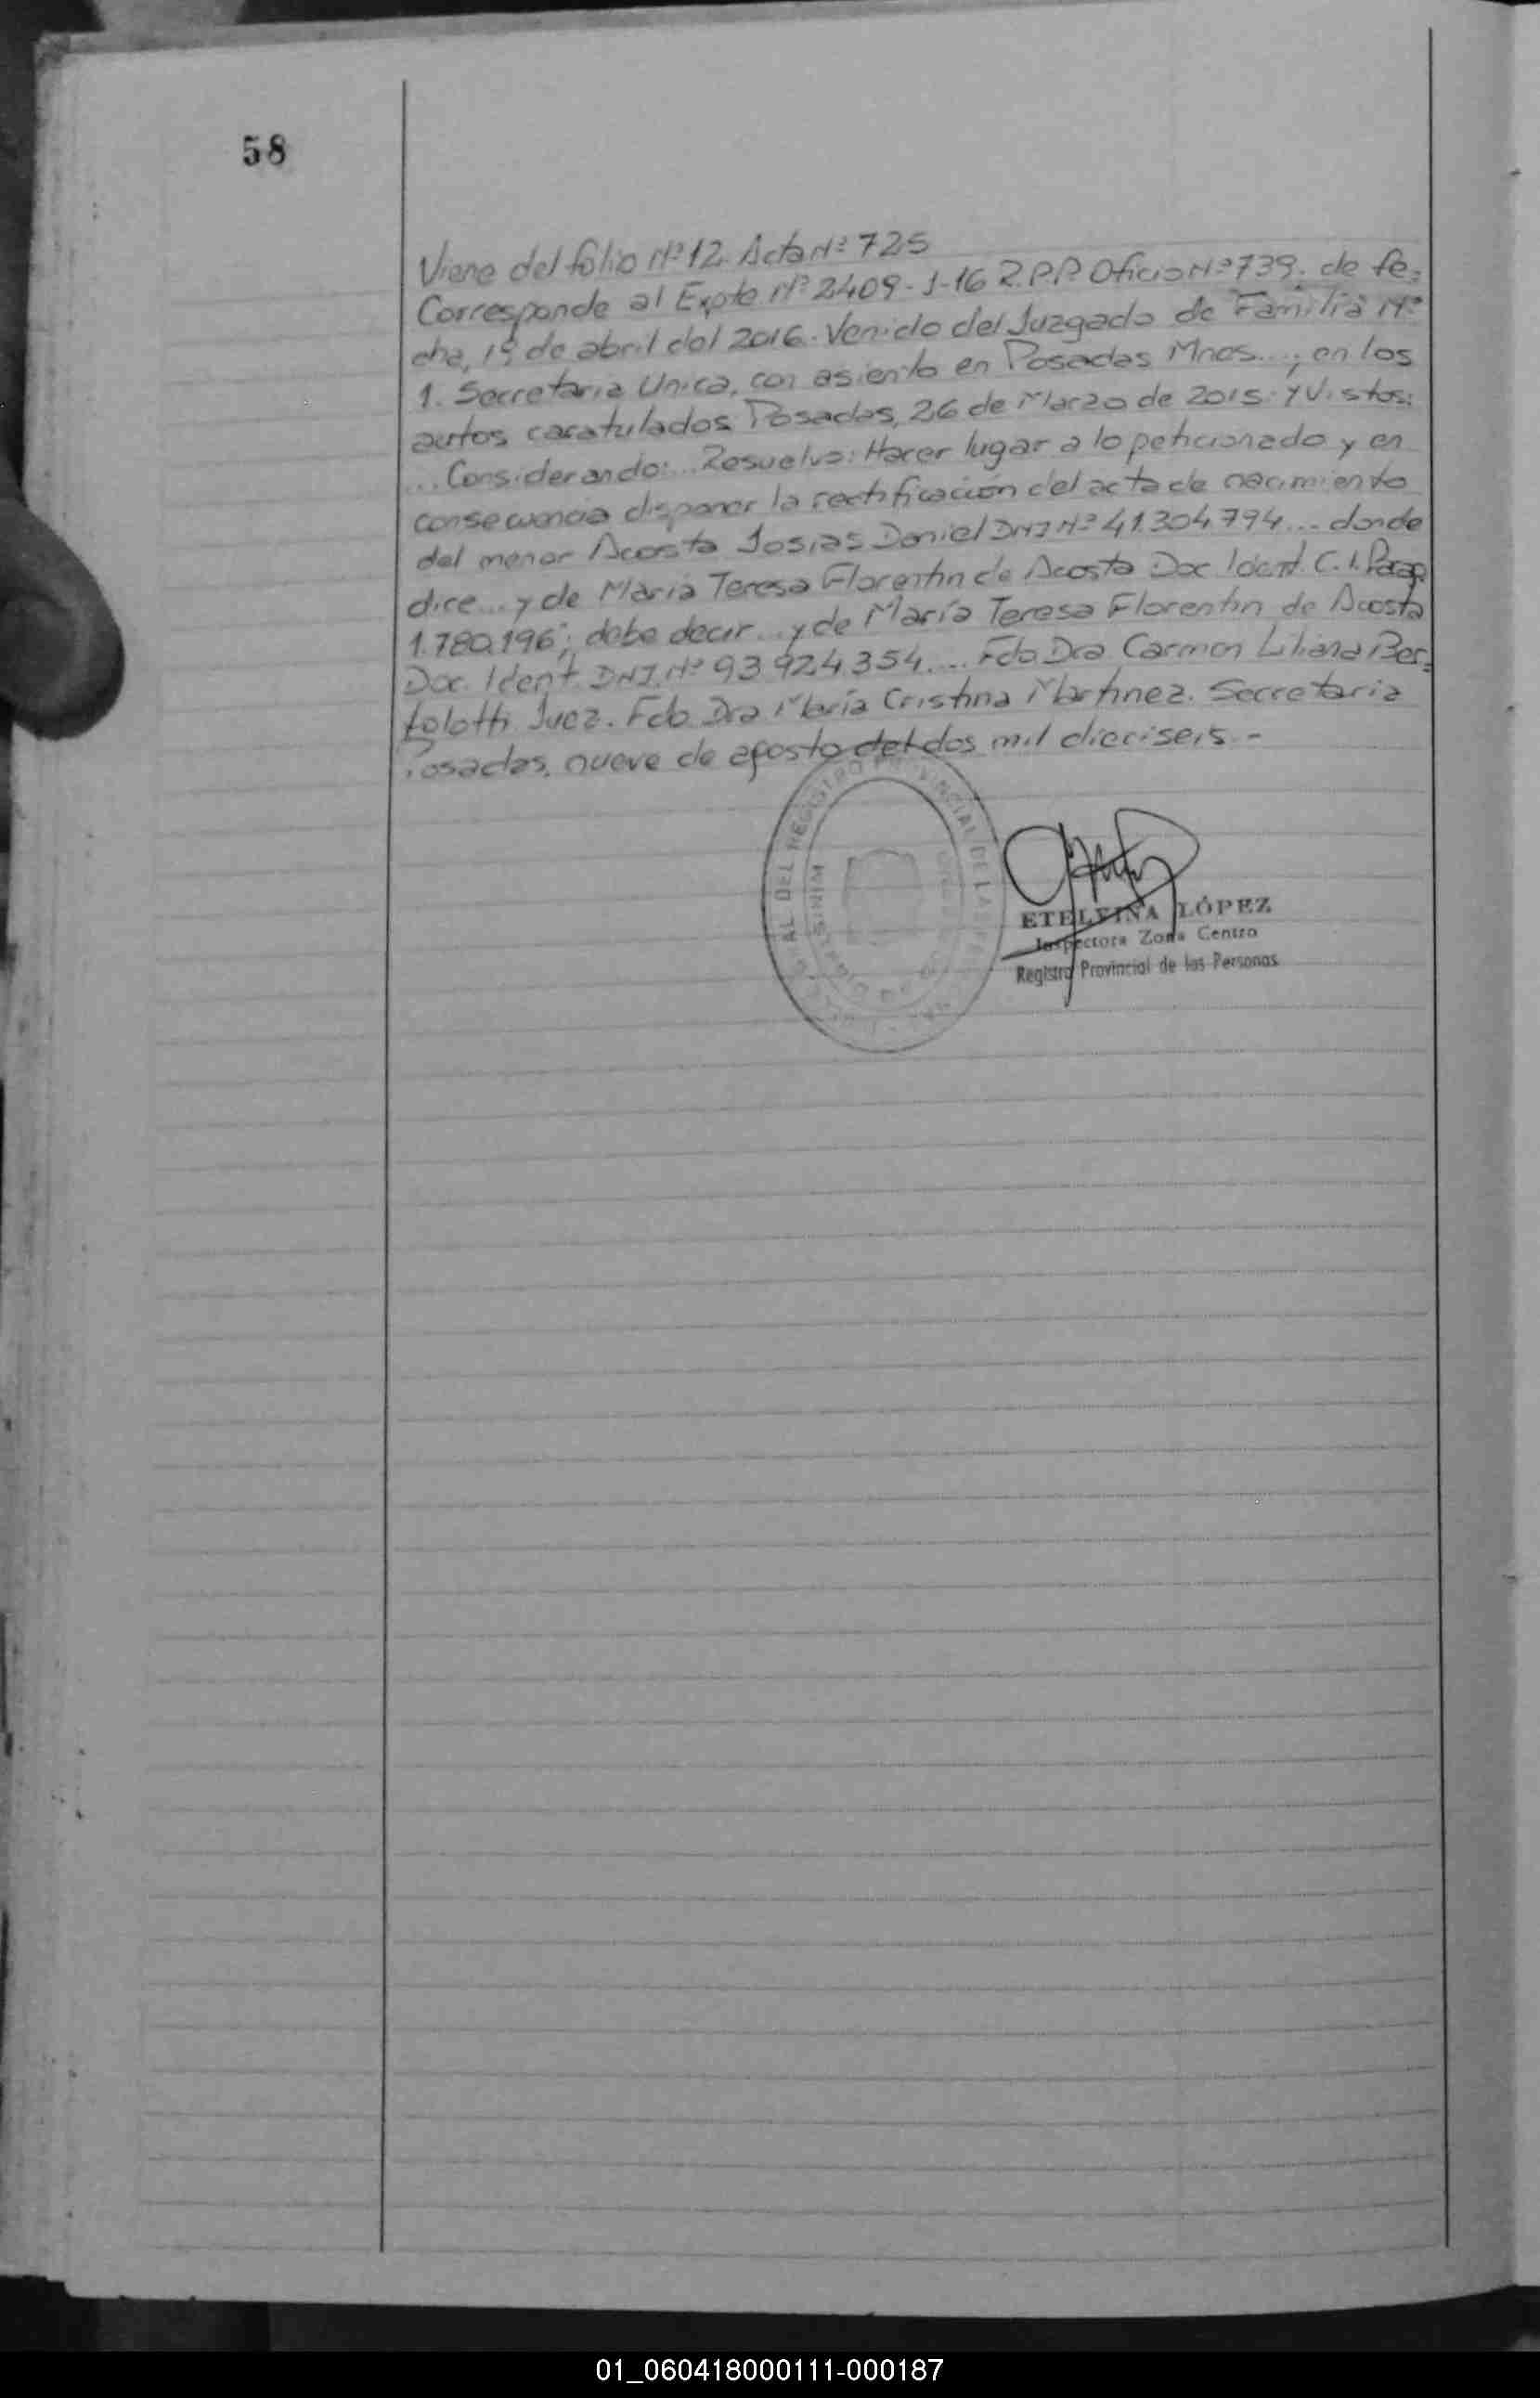 58
Viene del folio Nº 12 Acta Nº 725
Corresponde al Expte Nº 2409-J-16 R.P.P. Oficio Nº 739. de fe=
cha, 1º de abril del 2016. Venido del Juzgado de Familia Nº
1. Secretaria Unica, con asiento en Posadas Mnes...; en los
autos caratulados Posadas, 26 de Marzo de 2015: Y Vistos:
... Considerando:... Resuelvo: Hacer lugar a lo peticionado y en
consecuencia disponer la rectificación del acta de nacimiento
del menor Acosta Josias Daniel DNI Nº 41.304.794... donde
dice... y de María Teresa Florentin de Acosta Doc. Ident. C.I. Parag.
1.780.196; debe decir... y de María Teresa Florentin de Acosta
Doc. Ident. DNI. Nº 93 924.354.... Fdo Dra Carmen Liliana Ber=
tolotti Juez. Fdo. Dra María Cristina Martinez. Secretaria
Posadas, nueve de agosto del dos mil dieciseis.-
AL DEL REGISTRO PROVINCIAL DE LAS
MINIST
ETELVINA LÓPEZ
Inspectora Zona Centro
Registro Provincial de las Personas
01_060418000111-000187